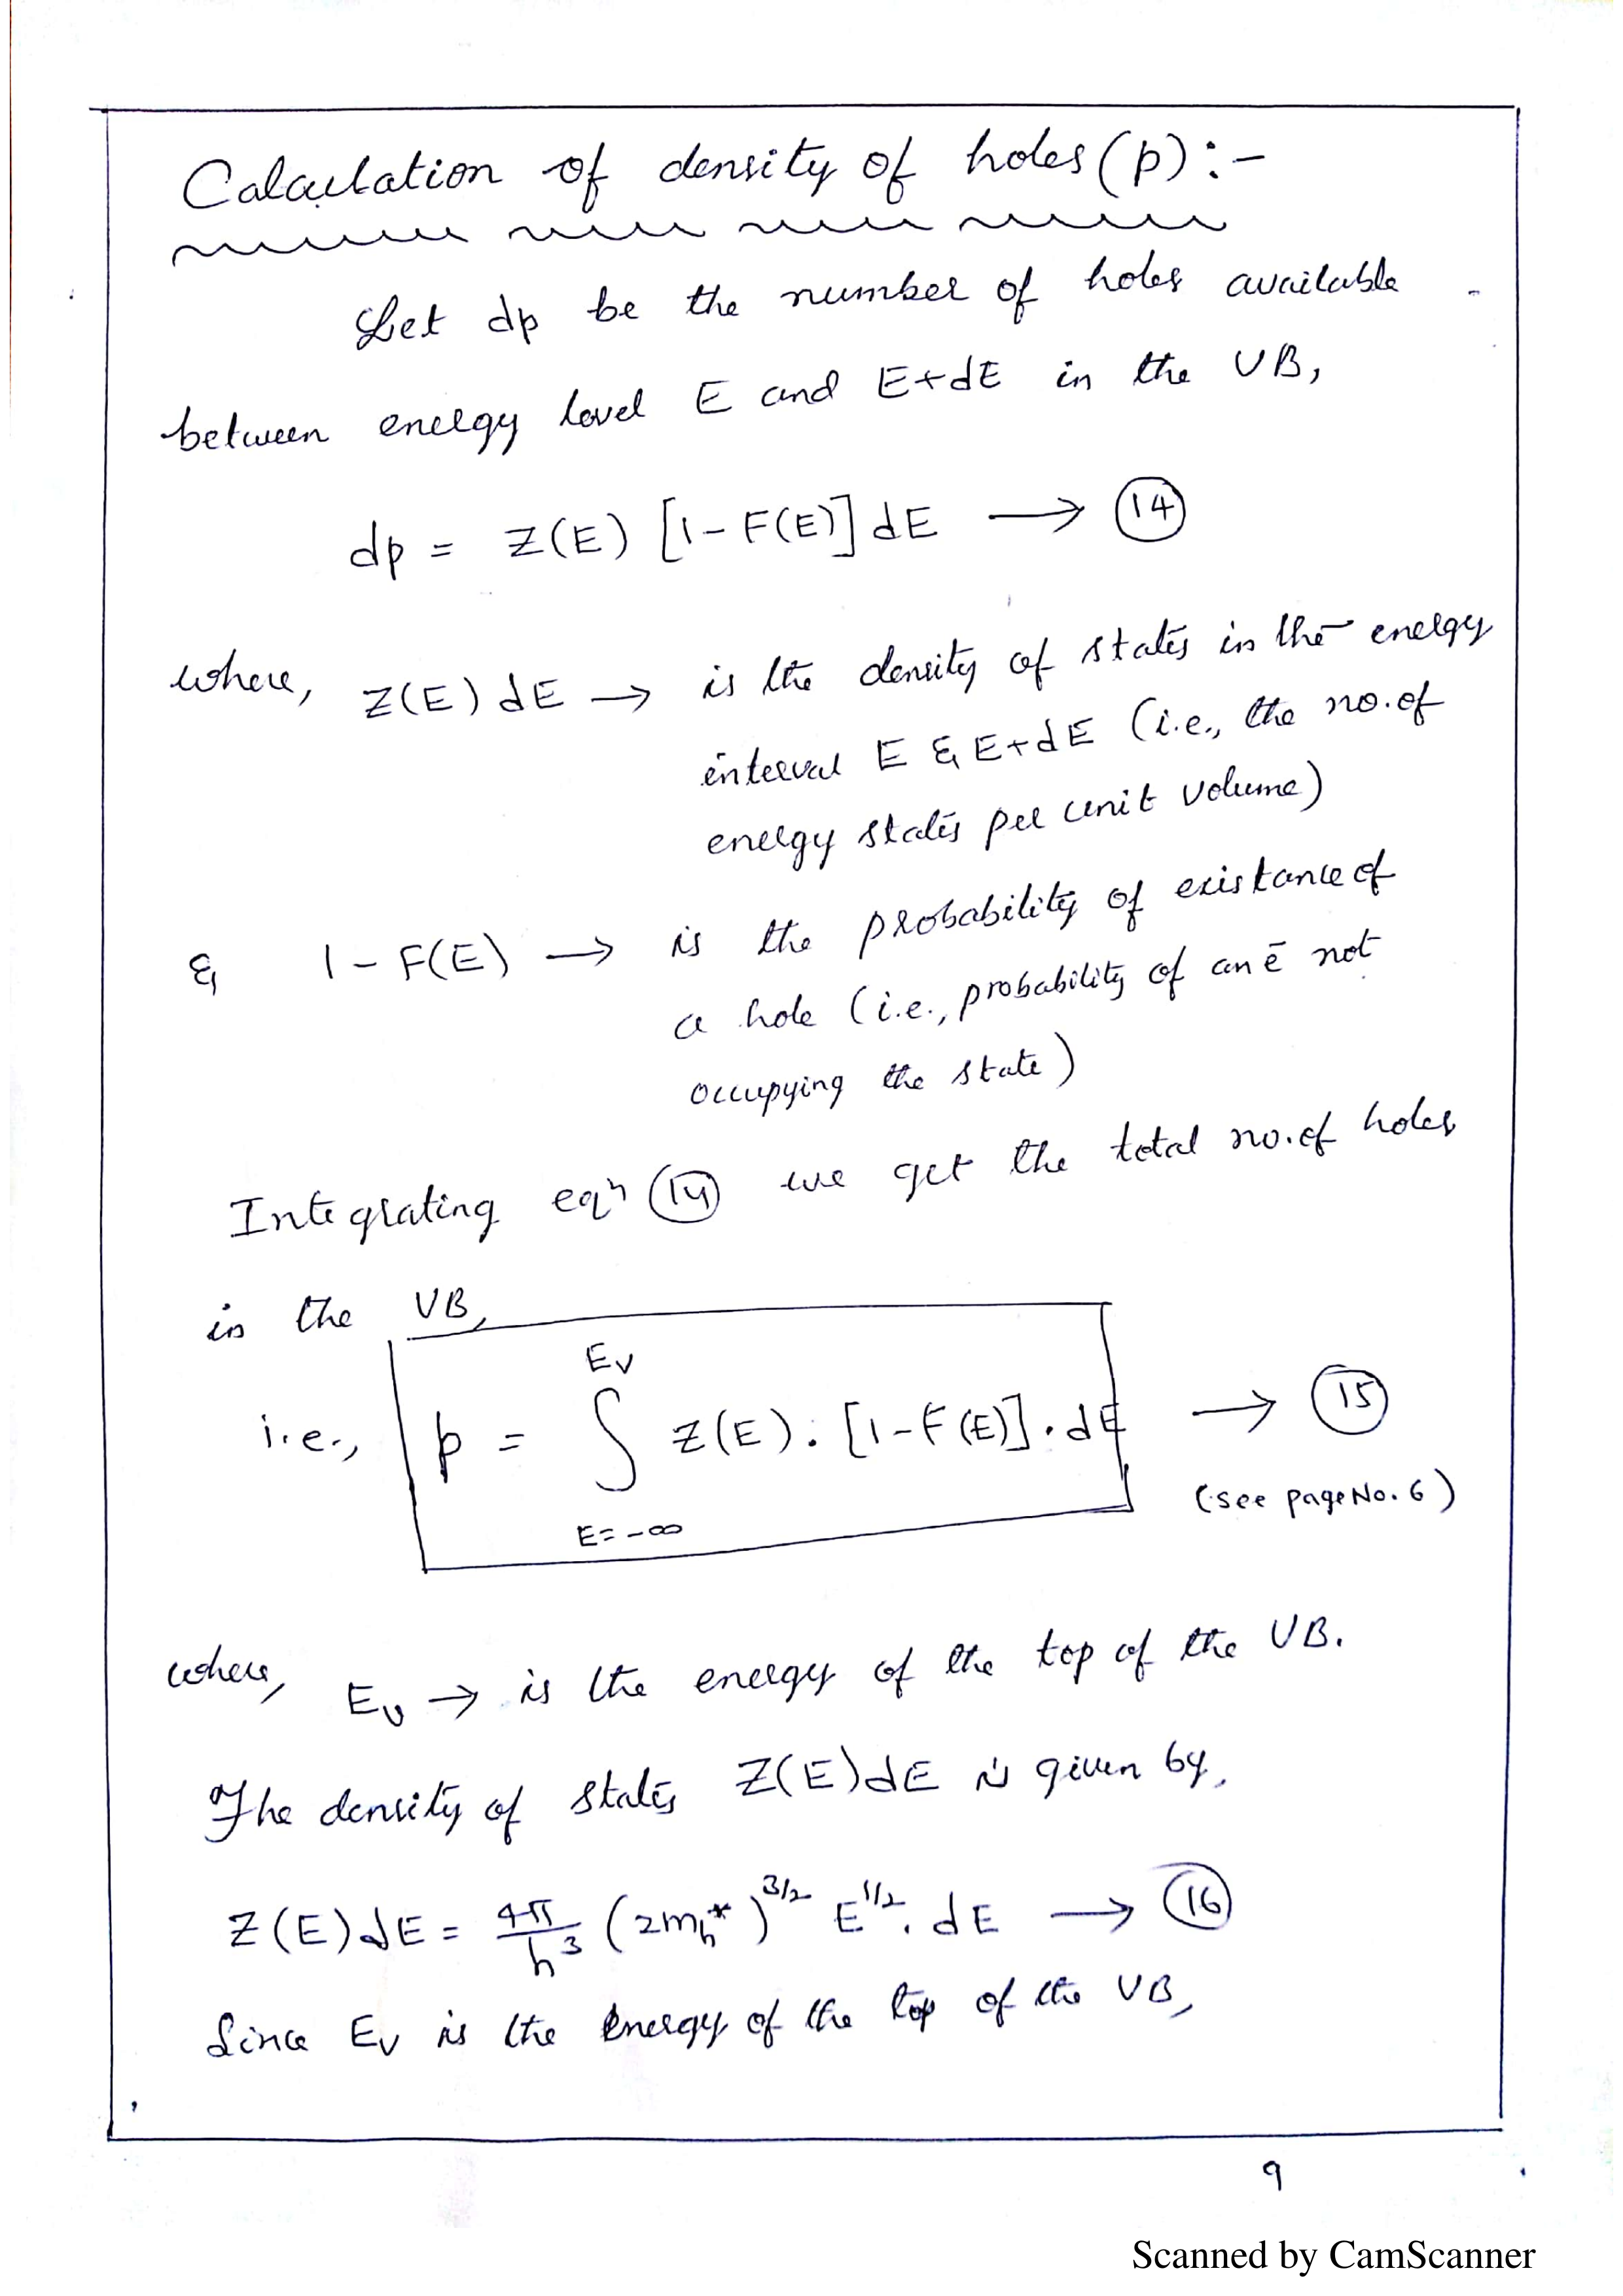 Calculation of density of holes (p):-
Let dp be the number of holes available
between energy level E and E+dE in the VB,
dp = Z(E) [1-F(E)] dE → (14)
where, Z(E) dE → is the density of states in the energy
interval E & E+dE (i.e., the no. of
energy states per unit volume)
& 1-F(E) → is the probability of existance of
a hole (i.e., probability of an ē not
occupying the state)
Integrating eqn (14) we get the total no. of holes
in the VB,
i.e., p = ∫_{E=-∞}^{Ev} Z(E). [1-F(E)]. dE → (15)
(see page No. 6)
where, Ev → is the energy of the top of the VB.
The density of states Z(E)dE is given by,
Z(E)dE = 4π/h³ (2m_h*)^3/2 E^1/2. dE → (16)
Since Ev is the energy of the top of the VB,
9
Scanned by CamScanner